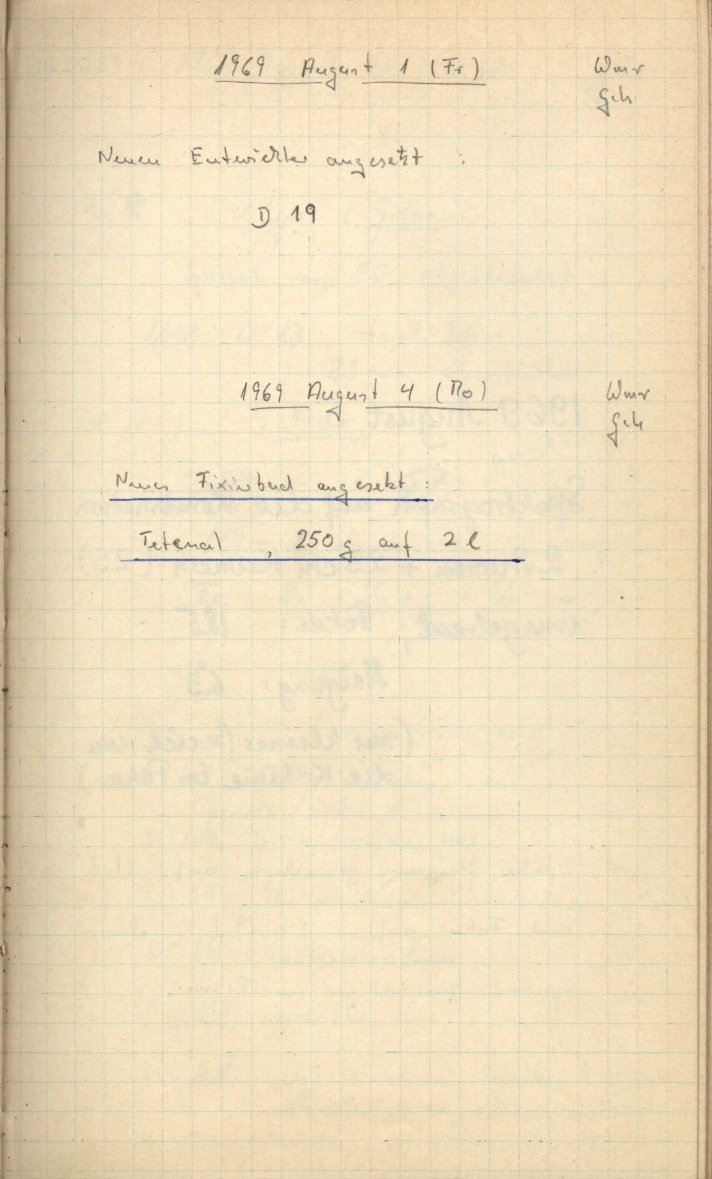 1969 August 1 (Fr)
Geh
Neuen Entwickler angesetzt :
D 19
1969 August 4 (Mo)
Geh
Neues Fixierbad angesetzt :
Tetenal , 250 g auf 2 l